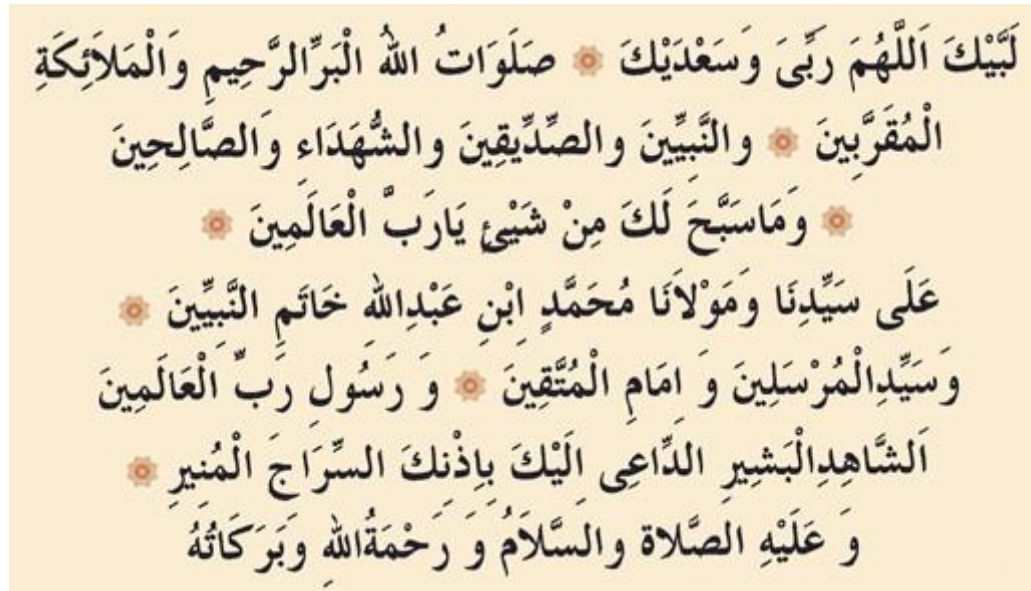 لَبَّيْكَ اَللَّهُمَ رَبِّىَ وَسَعْدَيْكَ ۞ صَلَوَاتُ اللهُ الْبَرِّالرَّحِيمِ وَالْمَلاَئِكَةِ
الْمُقَرَّبِينَ ۞ والنَّبِيِّينَ والصِّدِّيقِينَ والشُّهَدَاءِ وَالصَّالِحِينَ
۞ وَمَاسَبَّحَ لَكَ مِنْ شَيْئٍ يَارَبَّ الْعَالَمِينَ ۞
عَلَى سَيِّدِنَا وَمَوْلاَنَا مُحَمَّدٍ اِبْنِ عَبْدِاللهِ خَاتَمِ النَّبِيِّينَ ۞
وَسَيِّدِالْمُرْسَلِينَ وَ اِمَامِ الْمُتَّقِينَ ۞ وَ رَسُولِ رَبِّ الْعَالَمِينَ
اَلشَّاهِدِالْبَشِيرِ الدَّاعِى اِلَيْكَ بِاِذْنِكَ السِّرَاجَ الْمُنِيرِ ۞
وَ عَلَيْهِ الصَّلاة والسَّلاَمُ وَ رَحْمَةُاللهِ وَبَرَكَاتُهُ